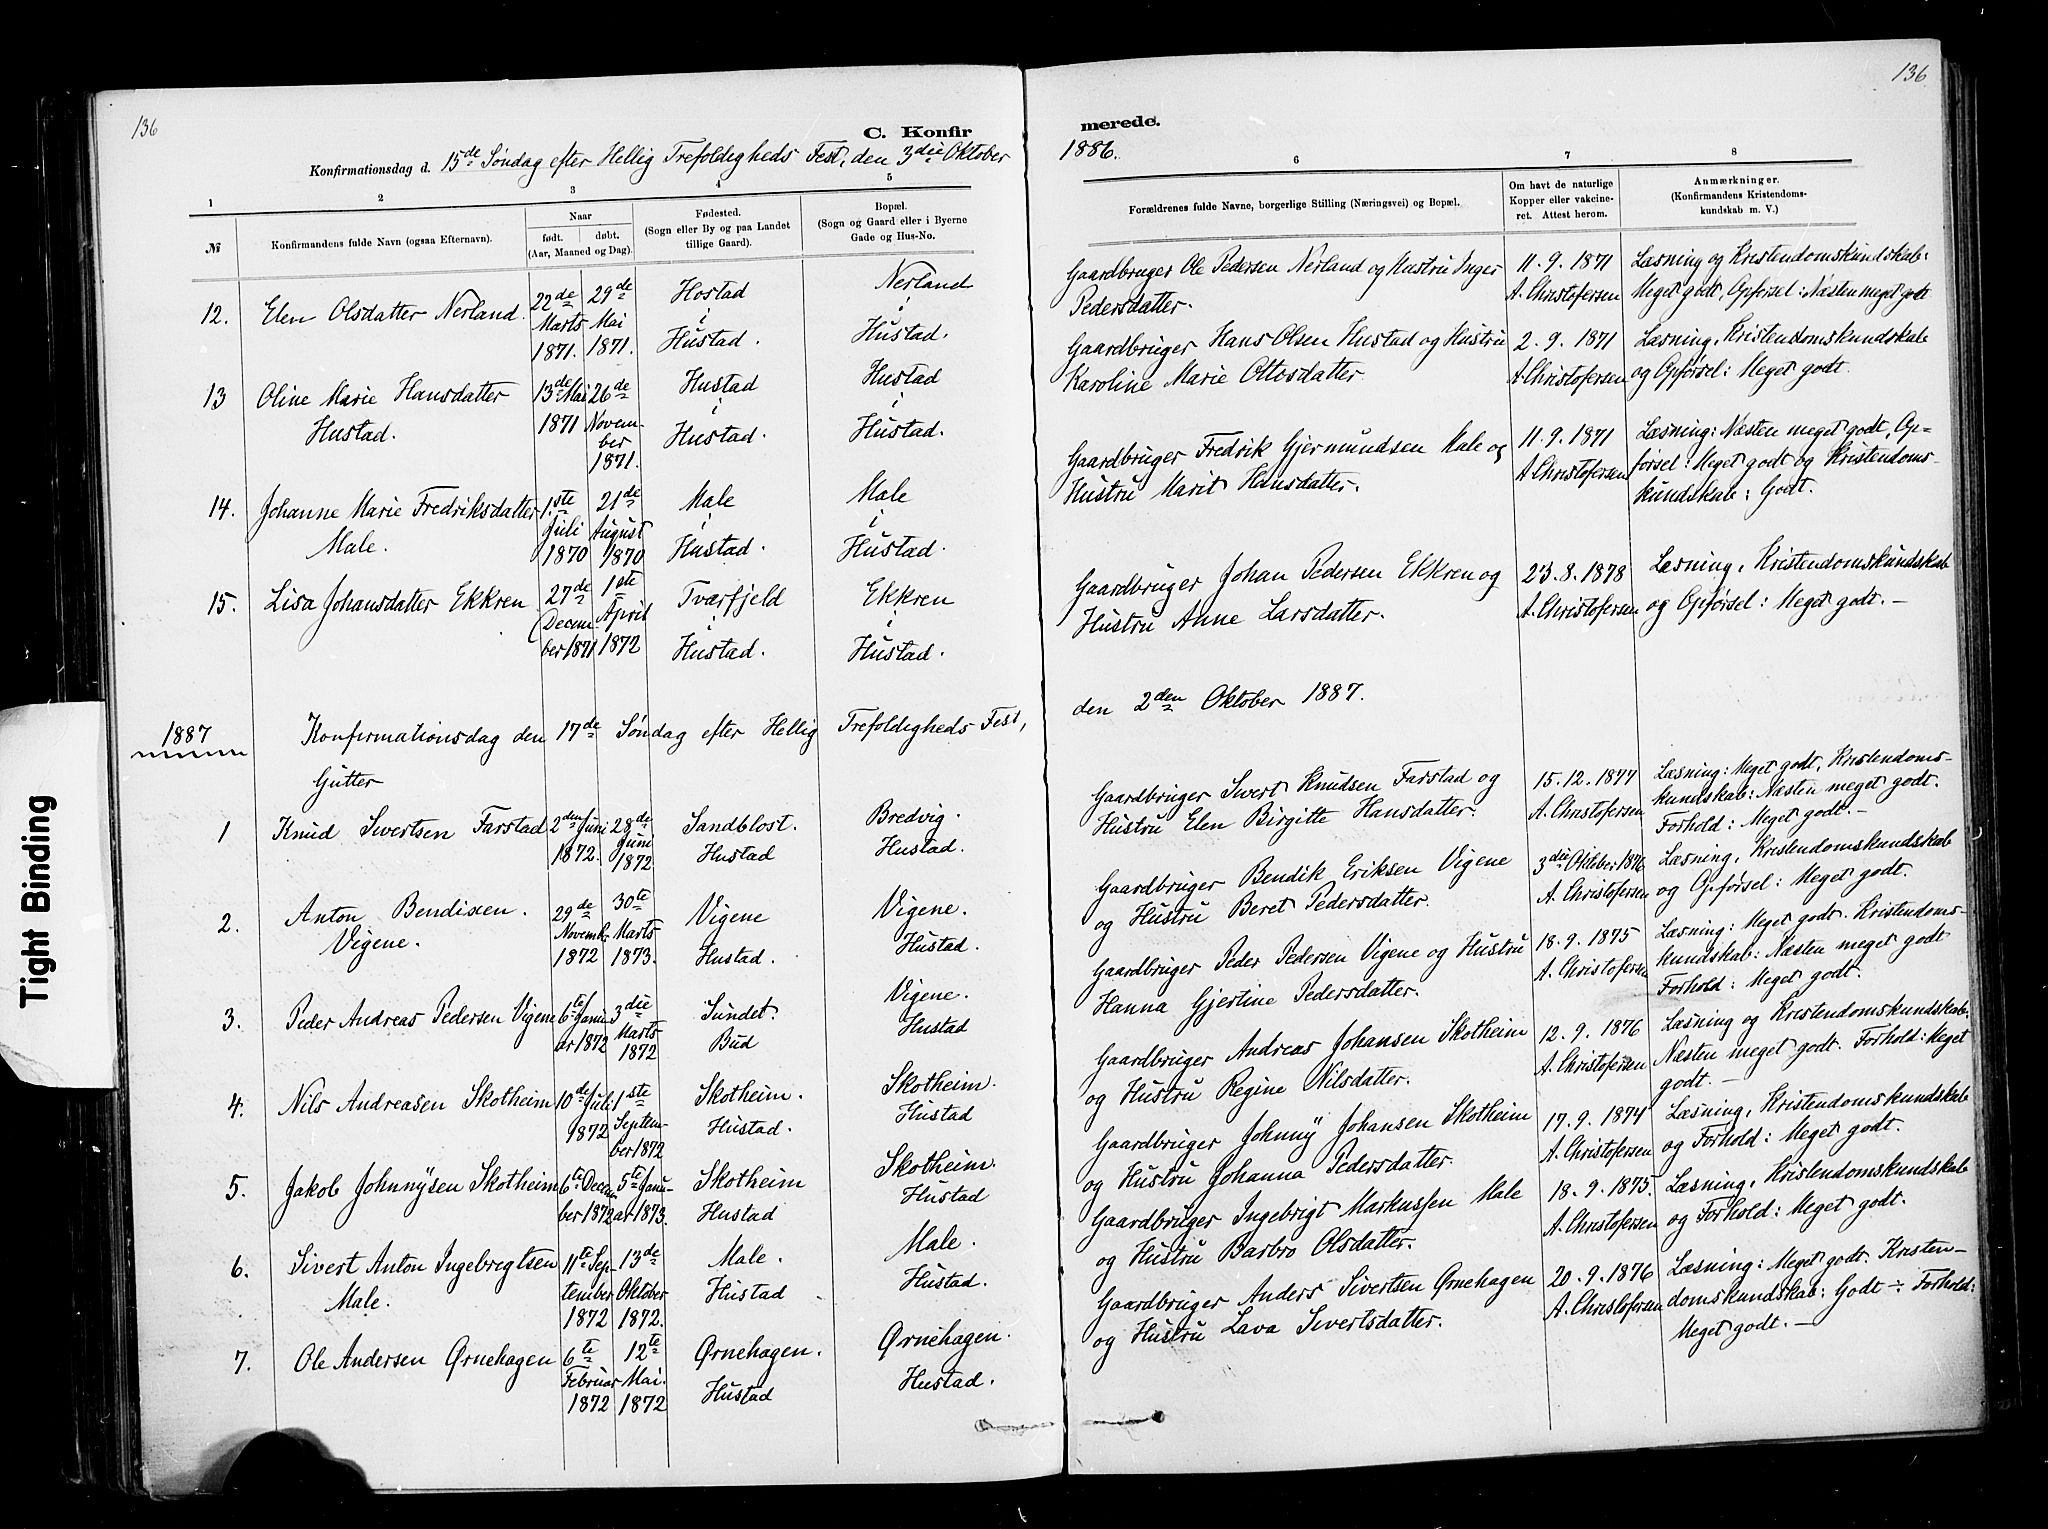 136
136
C. Konfir
merede.
Konfirmationsdag d. 15de Søndag efter Hellig Trefoldigheds Fest, den 3die Oktober
1886.
1
2
3
4
5
6
7
8
№
Konfirmandens fulde Navn (ogsaa Efternavn).
Naar
født. døbt.
(Aar, Maaned og Dag).
Fødested.
(Sogn eller By og paa Landet
tillige Gaard).
Bopæl.
(Sogn og Gaard eller i Byerne
Gade og Hus-No.
Forældrenes fulde Navne, borgerlige Stilling (Næringsvei) og Bopæl.
Om havt de naturlige
Kopper eller vakcine-
ret. Attest herom.
Anmærkninger.
(Konfirmandens Kristendoms-
kundskab m. V.)
12. Elen Olsdatter Nerland.
22de
Marts
1871.
29de
Mai
1871.
Hostad
i
Hustad.
Nerland
i
Hustad.
Gaardbruger Ole Pedersen Nerland og Hustru Inger
Pedersdatter.
11. 9. 1871
A. Christofersen
Læsning og Kristendomskundskab:
Meget godt, Opførsel: Næsten meget godt
13 Oline Marie Hansdatter
Hustad.
13de Mai
1871
26de
Novem-
ber
1871.
Hustad
i
Hustad.
Hustad
i
Hustad.
Gaardbruger Hans Olsen Hustad og Hustru
Karoline Marie Ottosdatter
2. 9. 1871
A. Christofersen
Læsning, Kristendomskundskab
og Opførsel: Meget godt.
14. Johanne Marie Fredriksdatter
Male.
1ste
Juli
1870
21de
August
1870
Male
i
Hustad.
Male
i
Hustad.
Gaardbruger Fredrik Gjermundsen Male og
Hustru Marit Hansdatter.
11. 9. 1871
A Christofersen
Læsning: Næsten meget godt, Op-
førsel: Meget godt og Kristendoms-
kundskab: Godt.
15. Lisa Johansdatter Ekkren
27de
Decem-
ber 1871
1ste
April
1872
Tverfjeld
i
Hustad.
Ekkren
i
Hustad.
Gaardbruger Johan Pedersen Ekkren og
Hustru Anne Larsdatter.
23. 8. 1878
A. Christofersen
Læsning, Kristendomskundskab
og Opførsel: Meget godt. —
1887
Konfirmationsdag den 17de Søndag efter Hellig Trefoldigheds Fest,
den 2den Oktober 1887.
Gutter
1 Knud Sivertsen Farstad
2den Juni
1872.
28de
Juni
1872.
Sandblost.
Hustad
Bredvig.
Hustad.
Gaardbruger Sivert Knudsen Farstad og
Hustru Elen Birgitte Hansdatter.
15. 12. 1877
A. Christofersen
Læsning: Meget godt, Kristendoms-
kundskab: Næsten meget godt.
Forhold: Meget godt. —
2. Anton Bendixen.
Vigene.
29de
Novemb.
1872
30te
Marts
1873.
Vigene
Hustad.
Vigene.
Hustad.
Gaardbruger Bendik Eriksen Vigene
og Hustru Beret Pedersdatter.
3die Oktober 1876
A. Christofersen
Læsning, Kristendomskundskab
og Opførsel: Meget godt.
3. Peder Andreas Pedersen Vigene
6te Janu-
ar 1872
3die
Marts
1872
Sundet.
Bud
Vigene.
Hustad
Gaardbruger Peder Pedersen Vigene og Hustru
Hanna Gjertine Pedersdatter.
18. 9. 1875
A. Christofersen
Læsning: Meget godt. Kristendoms-
kundskab: Næsten meget godt
Forhold: Meget godt.
4. Nils Andreasen Skotheim
10de Juli
1872
1ste
Septem-
ber 1872
Skotheim.
Hustad.
Skotheim.
Hustad
Gaardbruger Andreas Johansen Skotheim
og Hustru Regine Nilsdatter.
12. 9. 1876
A. Christofersen
Læsning og Kristendomskundskab:
Næsten meget godt. Forhold: Meget
godt. —
5. Jakob Johnnÿsen Skotheim
6te Decem-
ber 1872
5te Janu-
ar 1873.
Skotheim
Hustad
Skotheim.
Hustad
Gaardbruger Johnnÿ Johansen Skotheim
og Hustru Johanna Pedersdatter.
17. 9. 1874
A. Christofersen
Læsning, Kristendomskundskab
og Forhold: Meget godt.
6. Sivert Anton Ingebregtsen
Male.
11te Sep-
tember
1872
13de
Oktober
1872.
Male.
Hustad
Male.
Hustad.
Gaardbruger Ingebrigt Markussen Male
og Hustru Barbro Olsdatter.
18. 9. 1875.
A. Christofersen
Læsning, Kristendomskundskab
og Forhold: Meget godt.
7. Ole Andersen Ørnehagen
6te
Februar
1872
12te
Mai.
1872
Ørnehagen.
Hustad
Ørnehagen.
Hustad.
Gaardbruger Anders Sivertsen Ørnehagen
og Hustru Lava Sivertsdatter.
20. 9. 1876
A. Christofersen
Læsning: Meget godt. Kristen-
domskundskab: Godt ÷ Forhold:
Meget godt. —
Tight Binding